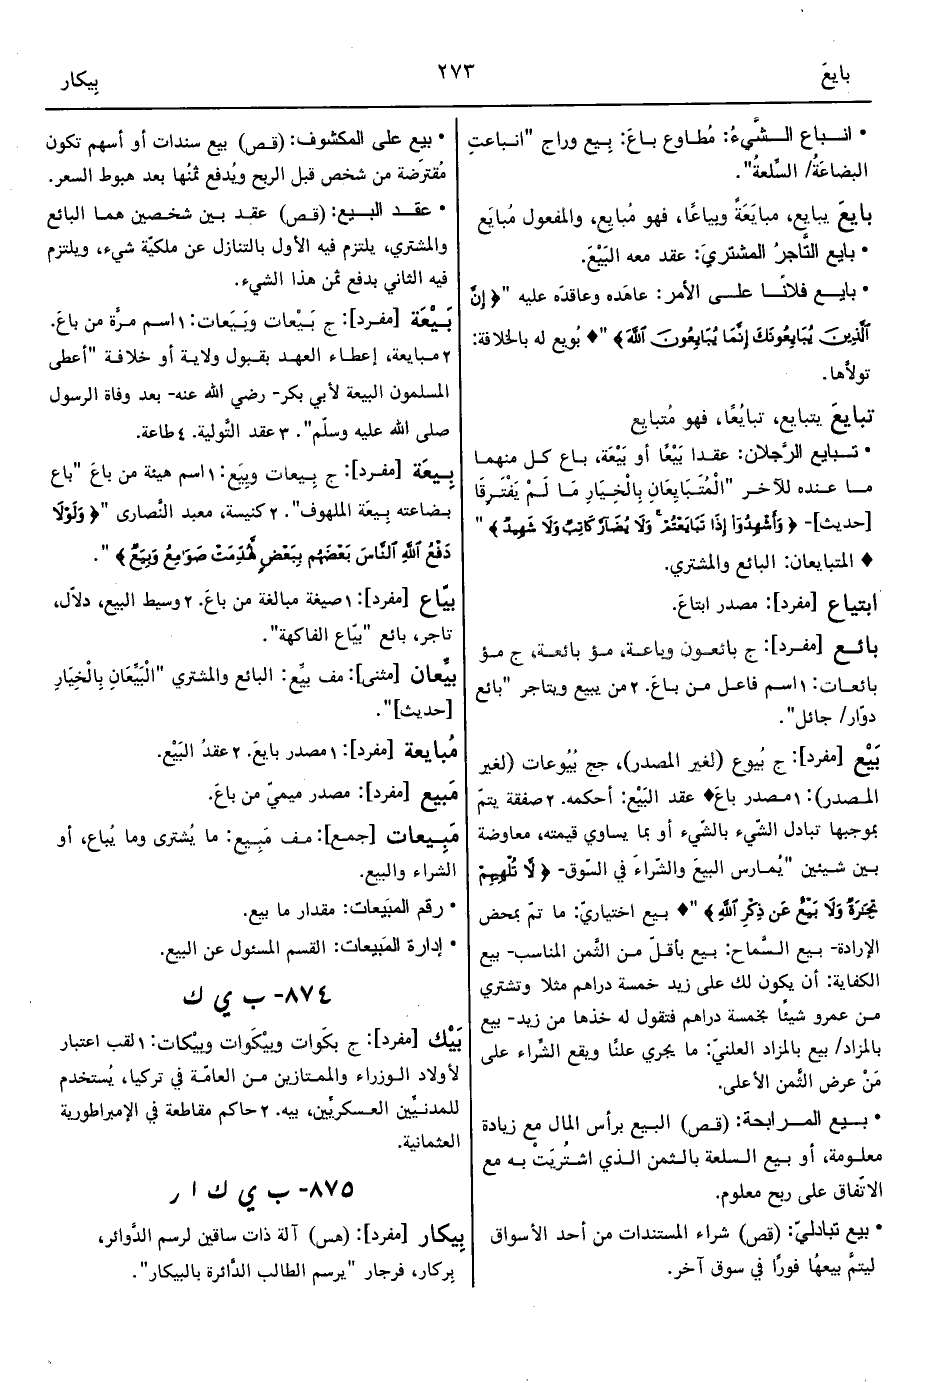 بايعَ
٢٧٣
بِيكار
• انـباع الـشَّيءُ: مُطاوع بـاعَ: بِـيع وراج "انـباعتِ
البضاعَةُ/ السِّلعةُ".
بايعَ يبايع، مبايَعَةً وبياعًا، فهو مُبايع، والمفعول مُبايَع
• بايع التَّاجرُ المشتريَ: عقد معه البَيْعَ.
• بايـع فلانًـا علـى الأمر: عاهَده وعاقدَه عليه "﴿ إِنَّ
ٱلَّذِينَ يُبَايِعُونَكَ إِنَّمَا يُبَايِعُونَ ٱللَّهَ ﴾" ♦ بُويع له بالخلافة:
تولاَّها.
تبايعَ يتبايع، تبايُعًا، فهو مُتبايع
• تـبايع الرَّجلان: عقدا بَيْعًا أو بَيْعَة، بـاع كـل منهمـا
مـا عـنده للآخـر "الْمُتَبَايِعَانِ بِالْخِيَارِ مَا لَـمْ يَفْتَـرِقَا
[حديث]- ﴿ وَأَشْهِدُوٓا۟ إِذَا تَبَايَعْتُمْ ۚ وَلَا يُضَآرَّ كَاتِبٌ وَلَا شَهِيدٌ ﴾ "
♦ المتبايعان: البائع والمشتري.
ابتياع [مفرد]: مصدر ابتاعَ.
بائـع [مفـرد]: ج بائعـون وباعـة، مـؤ بائعـة، ج مـؤ
بائعـات: ١ اسـم فاعـل مـن بـاعَ. ٢ من يبيع ويتاجر "بائع
دوّار/ جائل".
بَيْع [مفرد]: ج بُيوع (لغير المصدر)، جج بُيُوعات (لغير
المـصدر): ١ مـصدر باعَ ♦ عقد البَيْع: أحكمه. ٢ صفقة يتمّ
بموجبها تبادل الشَّيء بالشَّيء أو بما يساوي قيمته، معاوضة
بـين شـيئين "يُمارس البيعَ والشِّراءَ في السّوق- ﴿ لَّا تُلْهِيهِمْ
تِجَٰرَةٌ وَلَا بَيْعٌ عَن ذِكْرِ ٱللَّهِ ﴾ " ♦ بـيع اختياريّ: ما تمّ بمحض
الإرادة- بـيع الـسَّماح: بـيع بأقلّ مـن الثَّمن المناسب- بيع
الكفاية: أن يكون لك على زيد خمسة دراهم مثلا وتشتري
مـن عمرو شيئًا بخمسة دراهم فتقول له خذها من زيد- بيع
بالمزاد/ بيع بالمزاد العلنيّ: ما يجري علنًا ويقع الشّراء على
مَنْ عرض الثَّمن الأعلى.
• بـيـع المـرابحـة: (قـص) البـيع برأس المال مع زيادة
معلـومة، أو بـيع الـسلعة بالـثمن الـذي اشـتُريَتْ بـه مع
الاتِّفاق على ربح معلوم.
• بيع تبادليّ: (قص) شراء المستندات من أحد الأسواق
ليتمَّ بيعهُا فورًا في سوق آخر.
• بيع على المكشوف: (قص) بيع سندات أو أسهم تكون
مُقترضَة من شخص قبل الربح ويُدفع ثمنُها بعد هبوط السعر.
• عقـد البـيع: (قص) عقـد بـين شـخصين همـا البائع
والمشتري، يلتزم فيه الأول بالتنازل عن ملكيّة شيء، ويلتزم
فيه الثاني بدفع ثمن هذا الشيء.
بَـيْعَة [مفـرد]: ج بَـيْعات وبَـيَعات: ١ اسـم مرَّة من باعَ.
٢ مـبايعة، إعطـاء العهـد بقـبول ولايـة أو خلافـة "أعطى
المسلمون البيعة لأبي بكر- رضي الله عنه- بعد وفاة الرسول
صلى الله عليه وسلّم". ٣ عقد التَّولية. ٤ طاعة.
بِـيعَة [مفرد]: ج بِـيعات وبِيَع: ١ اسم هيئة من باعَ "باع
بـضاعته بِـيعَة الملهوف". ٢ كنيسة، معبد النَّصارى "﴿ وَلَوْلَا
دَفْعُ ٱللَّهِ ٱلنَّاسَ بَعْضَهُم بِبَعْضٍ لَّهُدِّمَتْ صَوَٰمِعُ وَبِيَعٌ ﴾ ".
بيّاع [مفرد]: ١ صيغة مبالغة من باعَ. ٢ وسيط البيع، دلاّل،
تاجر، بائع "بيّاع الفاكهة".
بيِّعان [مثنى]: مف بيِّع: البائع والمشتري "الْبَيِّعَانِ بِالْخِيَارِ
[حديث]".
مُبايعة [مفرد]: ١ مصدر بايعَ. ٢ عقدُ البَيْع.
مَبيع [مفرد]: مصدر ميميّ من باعَ.
مَبِـيعات [جمع]: مـف مَبِـيع: ما يُشترى وما يُباع، أو
الشراء والبيع.
• رقم المبَيعات: مقدار ما بيع.
• إدارة المَبيعات: القسم المسئول عن البيع.
٨٧٤- ب ي ك
بَيْك [مفرد]: ج بكَوات وبيْكَوات وبيْكات: ١ لقب اعتبار
لأولاد الـوزراء والممـتازين مـن العامّـة في تركيا، يُستخدم
للمدنـيِّين العـسكريِّين، بيه. ٢ حاكم مقاطعة في الإمبراطورية
العثمانية.
٨٧٥- ب ي ك ا ر
بِيكار [مفرد]: (هس) آلة ذات ساقين لرسم الدَّوائر،
بِركار، فرجار "يرسم الطالب الدَّائرة بالبيكار".